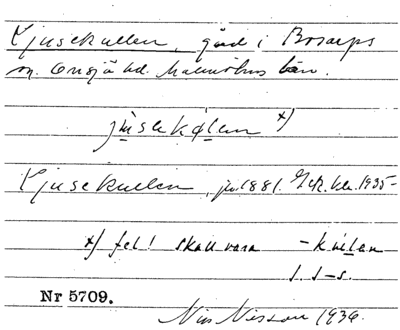 Ljusekullen, gård i Bosarps
sn. Onsjö hd. Malmöhus län.
jusekølen x)
Ljusekullen, 1881. 1935
x) fel! skall vara - kullen
I. I-s.
Nr 5709.
Nils Nilsson 1936.